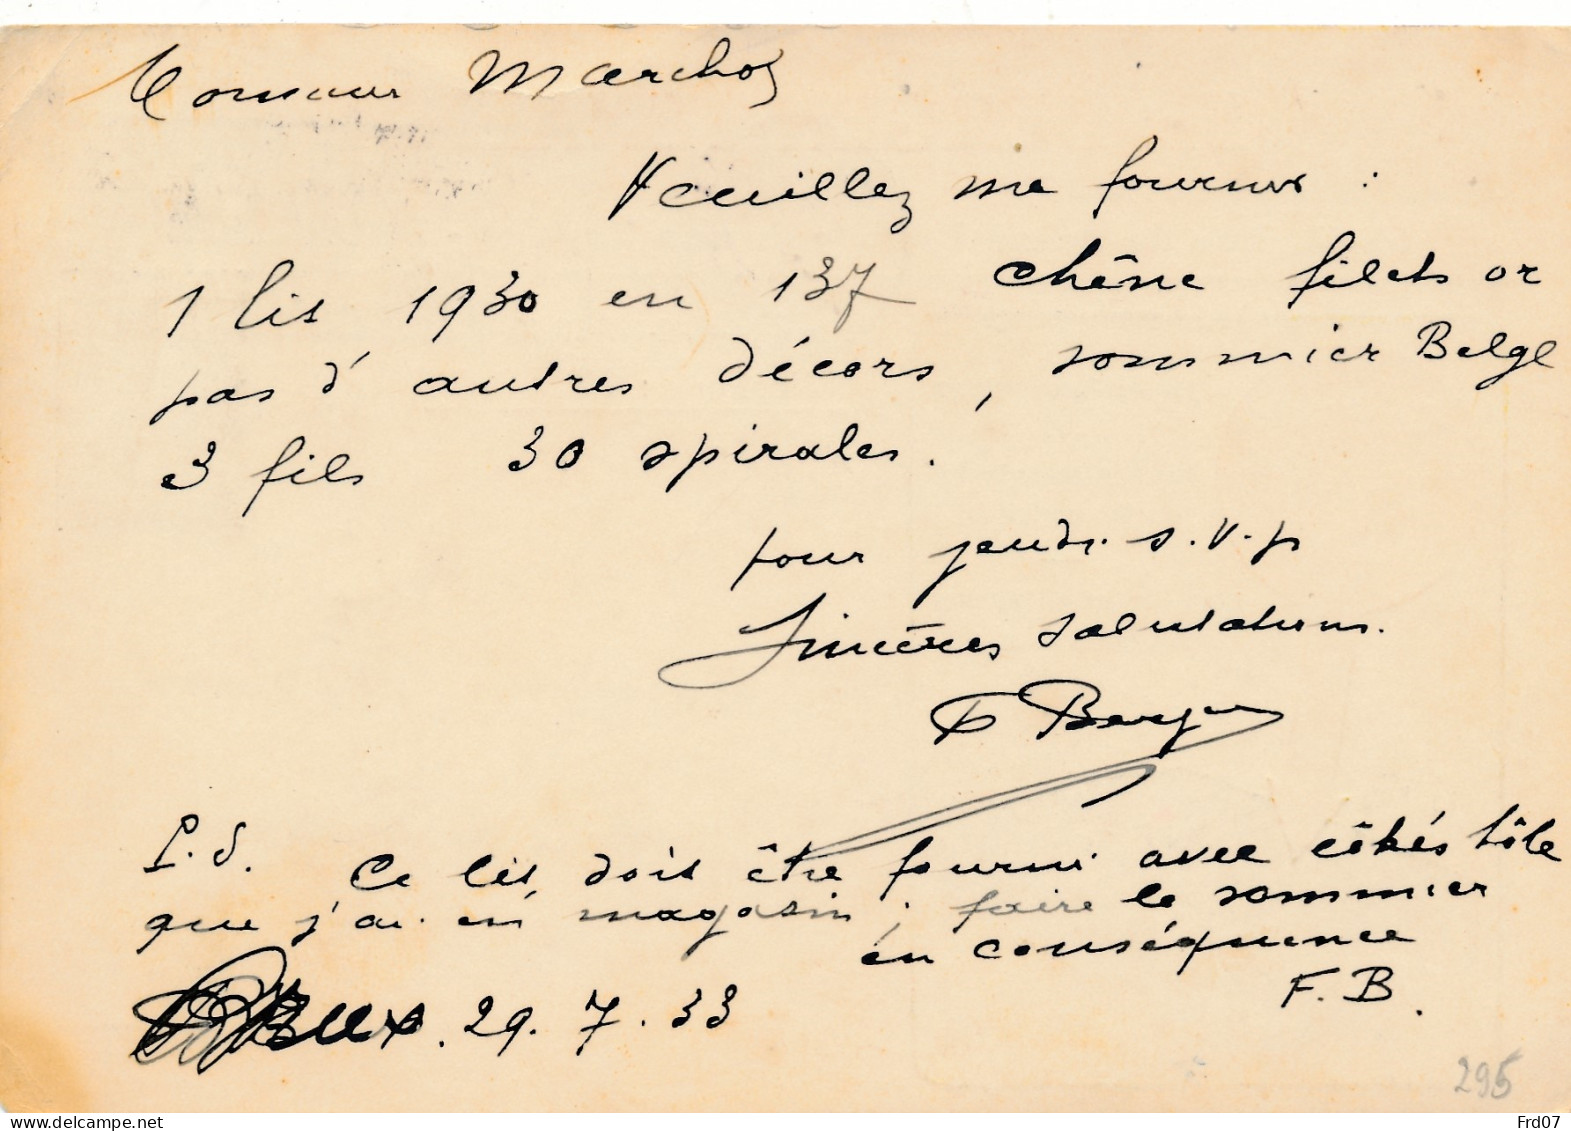 Monsieur Marchot
Veuillez me fournir :
1 lit 1930 en 137 chêne filets or
pas d'autres décors, sommier Belge
3 fils 30 spirales.
pour jeudi s.v.p
Sincères salutations.
F Berger
P.S. Ce lit doit être fourni avec côtés tôle
que j'ai en magasin ; faire le sommier
en conséquence
F. B.
29. 7. 33
295
Frd07